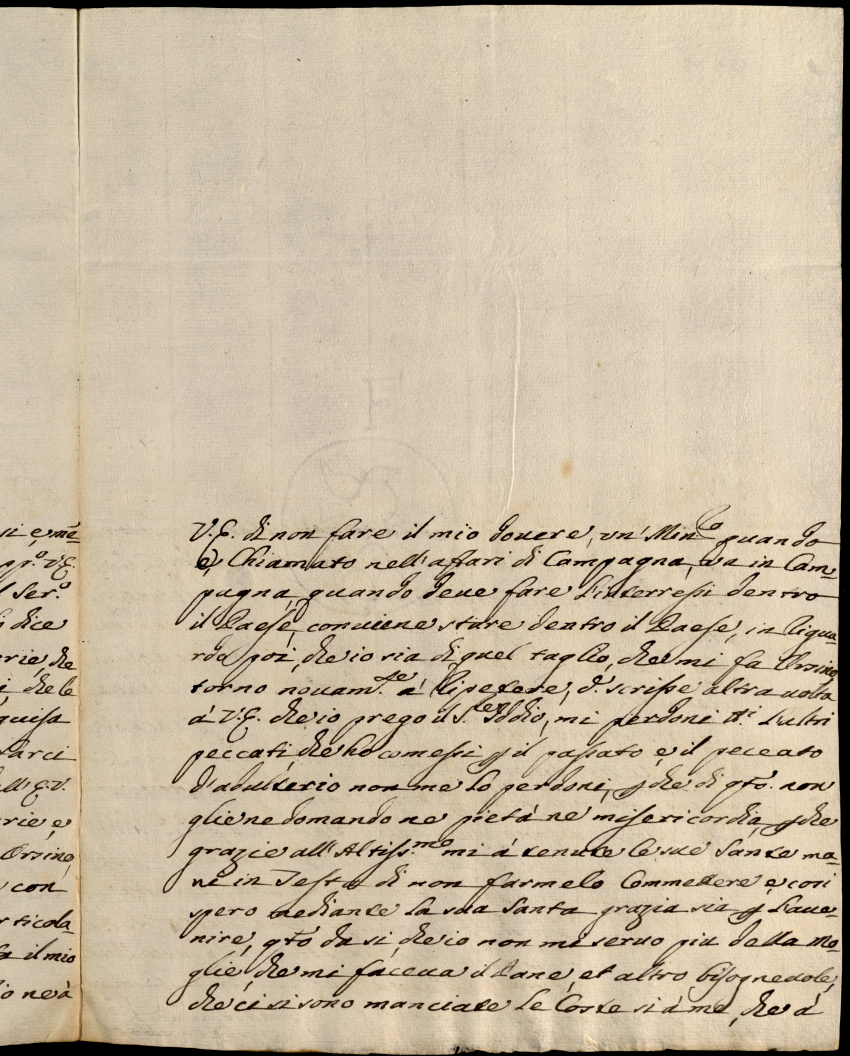 si e, mē
pr.º V.E.
l Ser.º
i dice
rie, che
i, che le
guisa
farci
ell'E.V.
rie e,
Orsino
con
rticola-
fa il mio
io ne à
V.E. di non fare il mio douere, un' Min.º quando
è, Chiamato nell'affari di Campagna, va in Cam-
pagna, quando deue fare l'interressi dentro
il Paese, conuiene stare dentro il Paese, in rigua-
rdo poi, che io sia di quel taglio, che mi fa Orsino
torno nouam.te a' ripetere, d. scrisse altra uolta
à V.E. che io prego il S.re Iddio, mi perdoni t.i l'altri
peccati, che ho comessi p il passato, e il peccato
d'adulterio non me lo perdoni, p che di q.to non
glie ne domando ne pietà ne misericordia, p che
grazie all'Altiss.mo mi à tenute le sue sante ma-
ni in Testa di non farmelo Commettere e, cosi
spero mediante la sua Santa grazia sia p l'aue-
nire, q.to da si, che io non mi seruo più della Mo-
glie, che mi faceua il Pane, et altro bisogneuole,
che ci si sono manciate le Coste si à me, che à